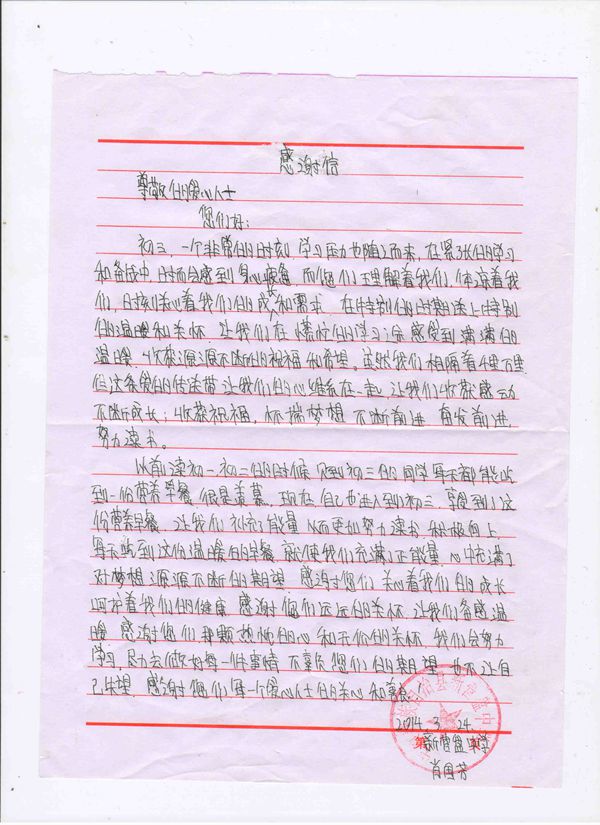 感谢信
尊敬的爱心人士
您们好：
初三，一个非常的时刻，学习压力也随之而来，在紧张的学习
和备战中，时而会感到身心疲惫，而您们理解着我们，体谅着我
们，时刻关心着我们的成长和需求，在特别的时期送上特别
的温暖和关怀，让我们在慌忙的学习途感受到满满的
温暖，收获源源不断的祝福和希望。虽然我们相隔着千里万里
但这条爱的传送带让我们的心维系在一起，让我们收获感动
不断成长；收获祝福，怀揣梦想，不断前进，奋发前进，
努力读书。
以前读初一初二的时候，见到初三的同学每天都能吃
到一份营养早餐，很是羡慕，现在自己也进入到了初三，享受到了这
份营养早餐，让我们补充了能量，从而更加努力读书，积极向上，
每天吃到这份温暖的早餐，就使我们充满正能量，心中充满了
对梦想源源不断的期望，感谢您们关心着我们的成长
呵护着我们的健康，感谢您们远远的关怀，让我们备感温
暖，感谢您们那颗热忱的心和无价的关怀，我们会努力
学习，尽力去做好每一件事情，不辜负您们的期望，也不让自
己失望，感谢您们每一个爱心人士的关心和善良。
2014.3.24.
新营盘中学
肖国芳